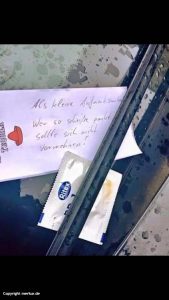 Als kleine Aufmerksamkeit
Wer so scheiße parkt
sollte sich nicht
vermehren!
Ritex
Copyright merkur.de